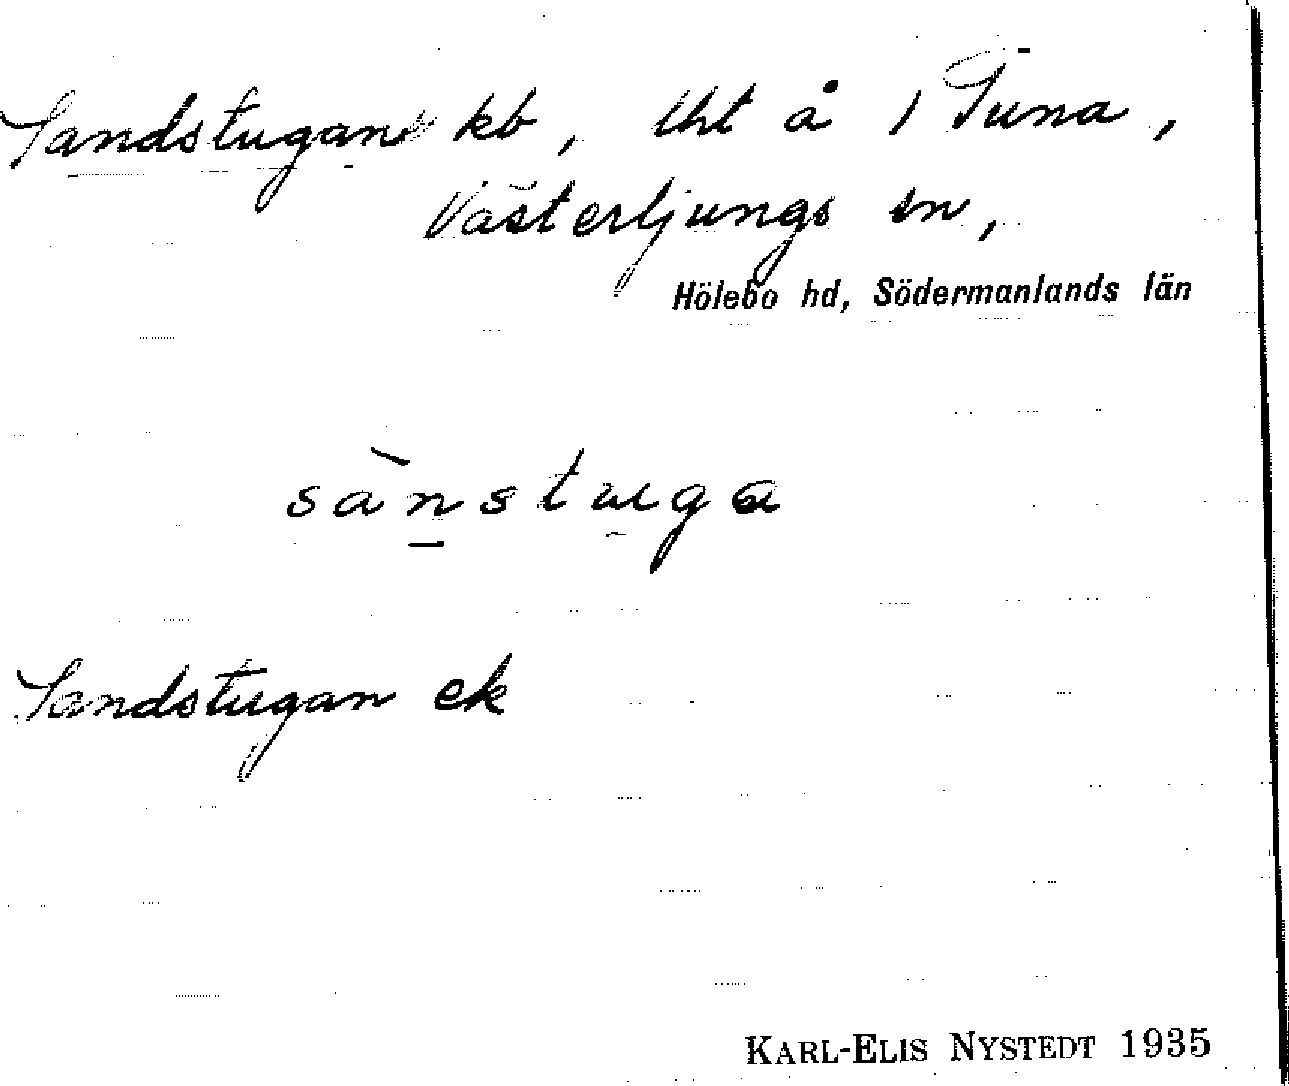 Sandstugan kb, lht å 1 Tuna,
Västerljungs sn,
Hölebo hd, Södermanlands län
sànstuga
Sandstugan ek
KARL-ELIS NYSTEDT 1935